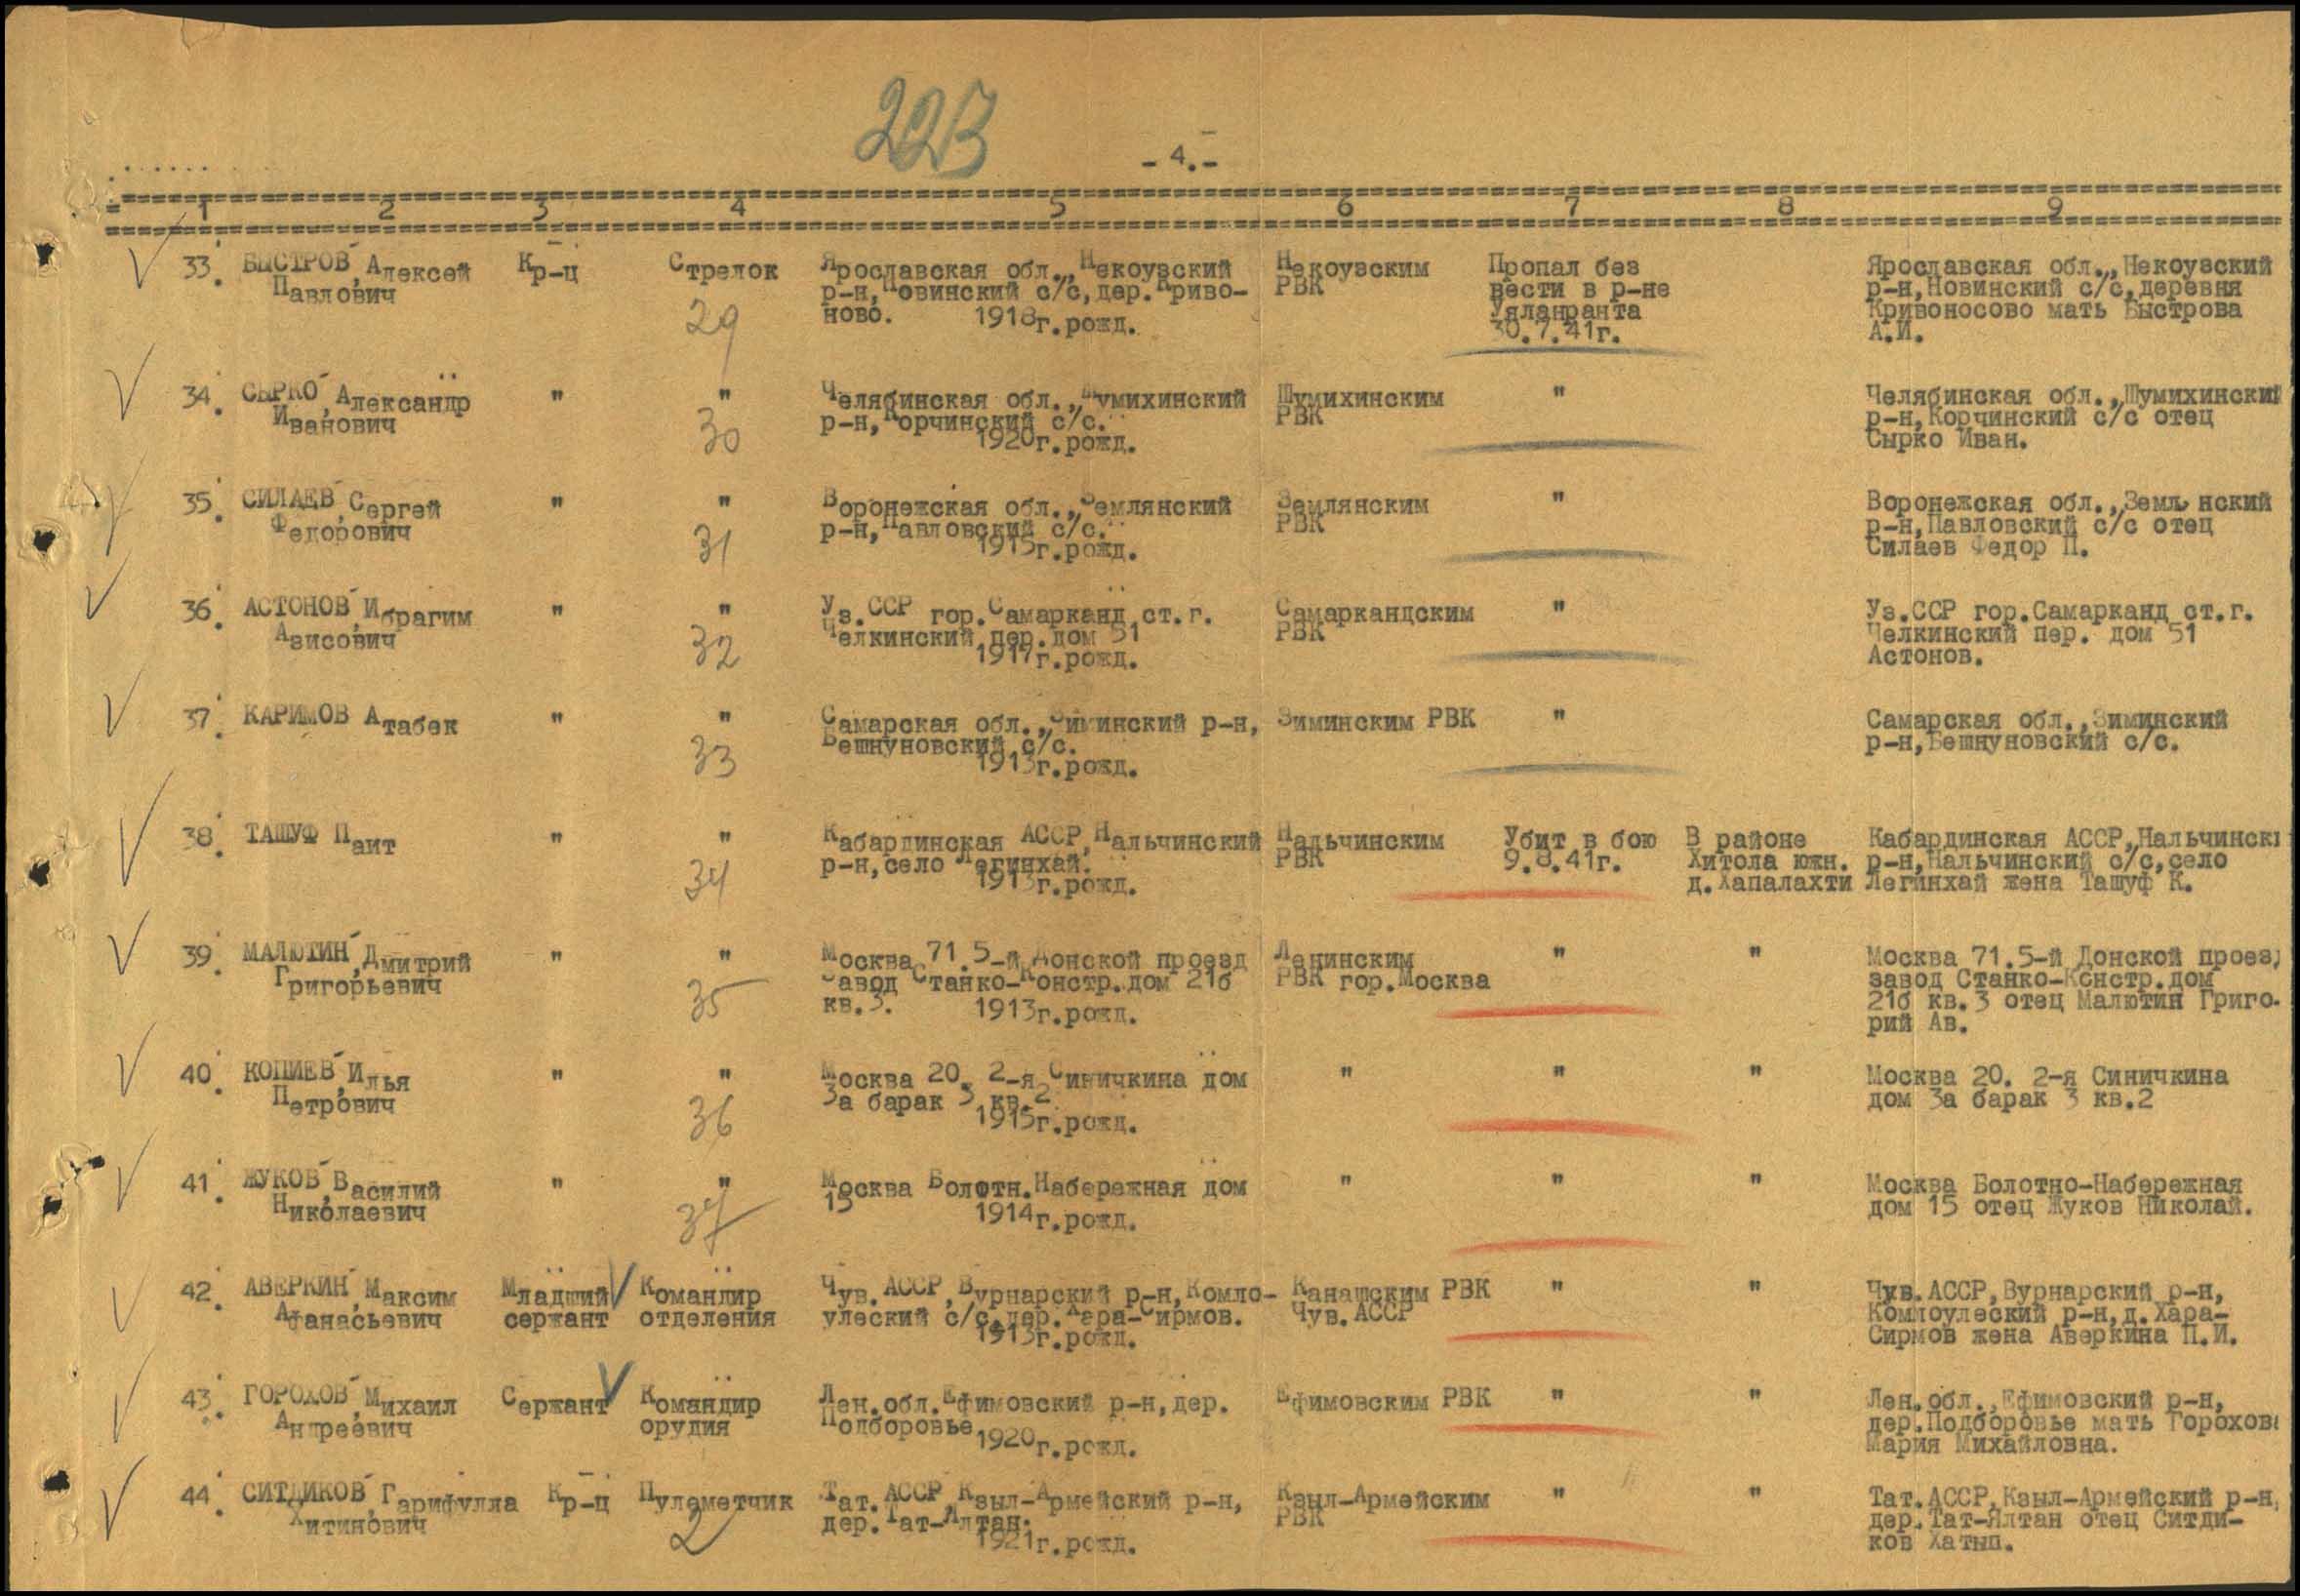 223
- 4.-
1 2 3 4 5 6 7 8 9
33. БЫСТРОВ Алексей Кр-ц Стрелок Ярославская обл., Некоузский Некоузским Пропал без Ярославская обл., Некоузский
Павлович р-н, Новинский с/с, дер. Криво- РВК вести в р-не р-н, Новинский с/с, деревня
29 ново. 1918г.рожд. Уяланранта Кривоносово мать Быстрова
30.7.41г. А.И.
34. СЫРКО Александр " " Челябинская обл., Шумихинский Шумихинским " Челябинская обл., Шумихинский
Иванович р-н, Корчинский с/с. РВК р-н, Корчинский с/с отец
30 1920г.рожд. Сырко Иван.
35. СИЛАЕВ Сергей " " Воронежская обл., Землянский Землянским " Воронежская обл., Земл нский
Федорович р-н, Павловский с/с. РВК р-н, Павловский с/с отец
31 1915г.рожд. Силаев Федор П.
36. АСТОНОВ Ибрагим " " Уз.ССР гор.Самарканд ст.г. Самаркандским " Уз.ССР гор.Самарканд ст.г.
Азисович Челкинский пер. дом 51 РВК Челкинский пер. дом 51
32 1917г.рожд. Астонов.
37. КАРИМОВ Атабек " " Самарская обл., Зиминский р-н, Зиминским РВК " Самарская обл., Зиминский
Бешнуновский с/с. р-н, Бешнуновский с/с.
33 1913г.рожд.
38. ТАШУФ Паит " " Кабардинская АССР, Нальчинский Нальчинским Убит в бою В районе Кабардинская АССР, Нальчински
р-н, село Легинхай. РВК 9.8.41г. Хитола южн. р-н, Нальчинский с/с, село
34 1913г.рожд. д.Хапалахти Легинхай жена Ташуф К.
39. МАЛЮТИН Дмитрий " " Москва 71. 5-й Донской проезд Ленинским " " Москва 71. 5-й Донской проезд
Григорьевич завод Станко-Констр. дом 21б РВК гор.Москва завод Станко-Констр. дом
35 кв.3. 1913г.рожд. 21б кв. 3 отец Малютин Григо-
рий Ав.
40. КОПИЕВ Илья " " Москва 20. 2-я Синичкина дом " " " Москва 20. 2-я Синичкина
Петрович 3а барак 3 кв.2 дом 3а барак 3 кв.2
36 1915г.рожд.
41. ЖУКОВ Василий " " Москва Болотн.Набережная дом " " " Москва Болотно-Набережная
Николаевич 15 1914г.рожд. дом 15 отец Жуков Николай.
37
42. АВЕРКИН Максим Младший Командир Чув.АССР, Вурнарский р-н, Комло- Канашским РВК " " Чув.АССР, Вурнарский р-н,
Афанасьевич сержант отделения улеский с/с, дер. Хара-Сирмов. Чув.АССР Комлоулеский р-н, д.Хара-
1913г.рожд. Сирмов жена Аверкина П.И.
43. ГОРОХОВ Михаил Сержант Командир Лен.обл. Ефимовский р-н, дер. Ефимовским РВК " " Лен.обл., Ефимовский р-н,
Андреевич орудия Подборовье дер.Подборовье мать Горохова
1920г.рожд. Мария Михайловна.
44. СИТДИКОВ Гарифулла Кр-ц Пулеметчик Тат.АССР, Кзыл-Армейский р-н, Кзыл-Армейским " " Тат.АССР, Кзыл-Армейский р-н,
Хитинович 2 дер. Тат-Ялтан. РВК дер. Тат-Ялтан отец Ситди-
1921г.рожд. ков Хатып.